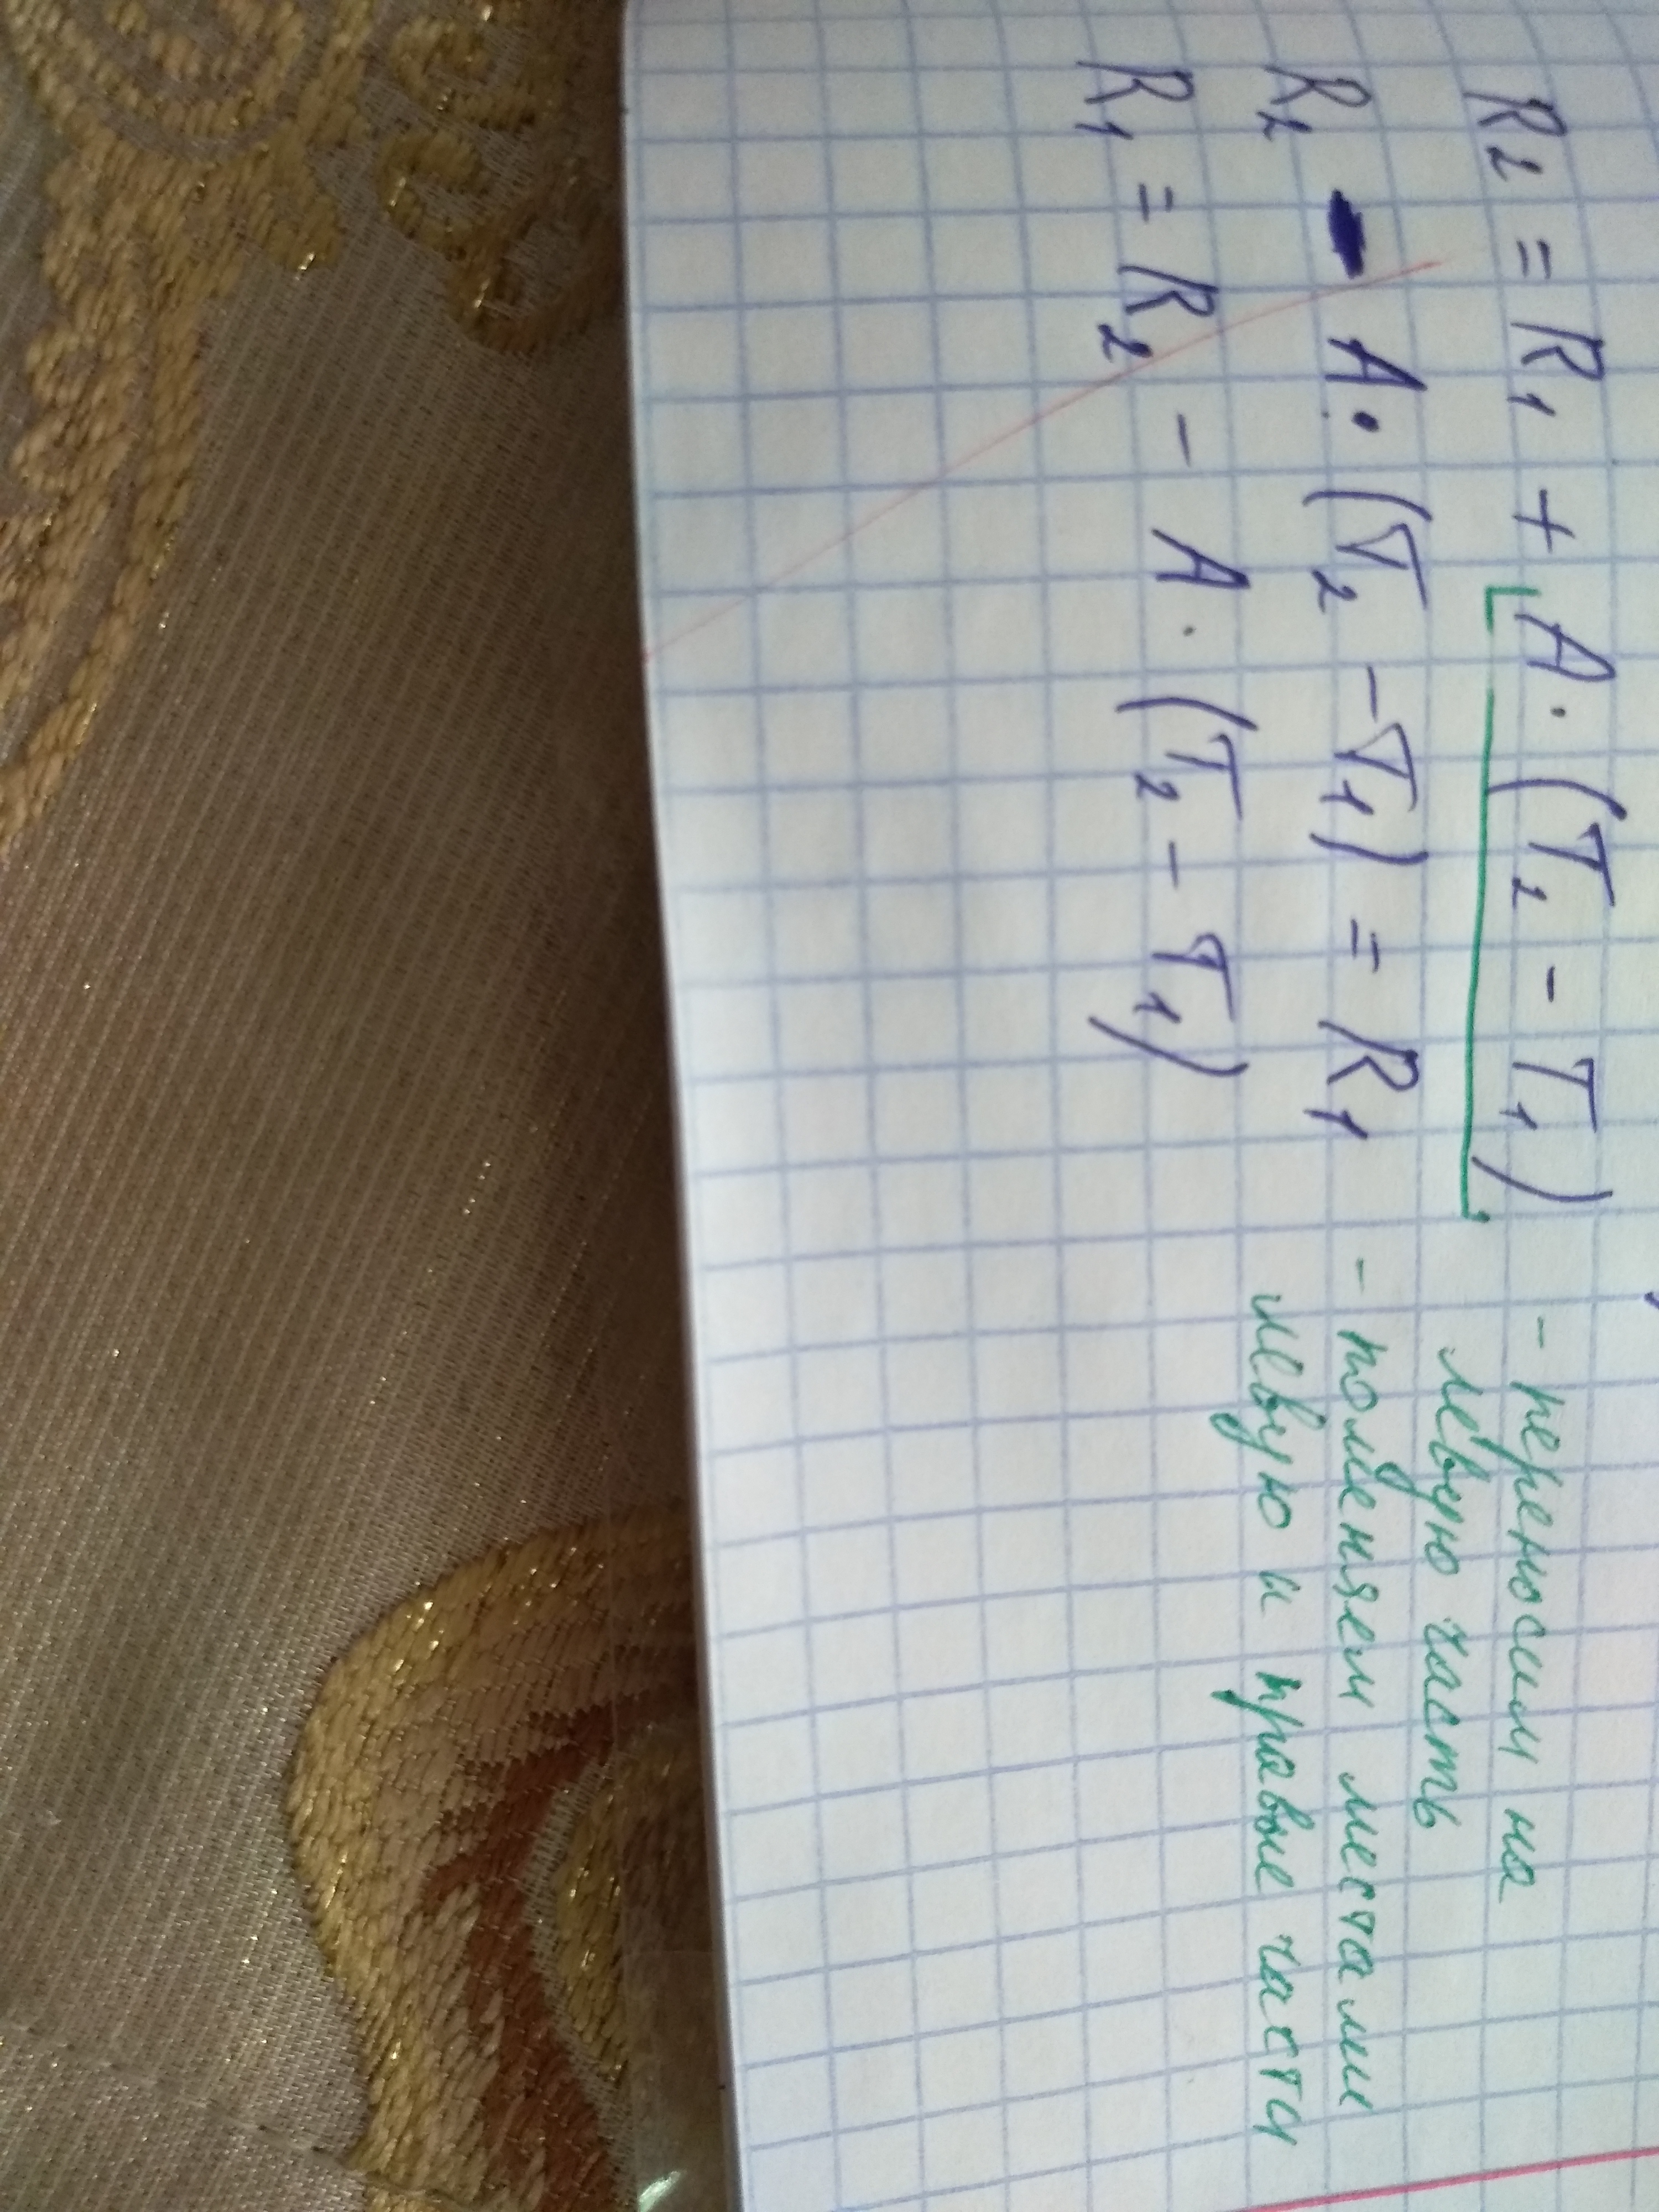 R₂ = R₁ + A · (T₂ - T₁) - переносим на
левую часть
R₂ - A · (T₂ - T₁) = R₁ - поменяем местами
левую и правые части
R₁ = R₂ - A · (T₂ - T₁)